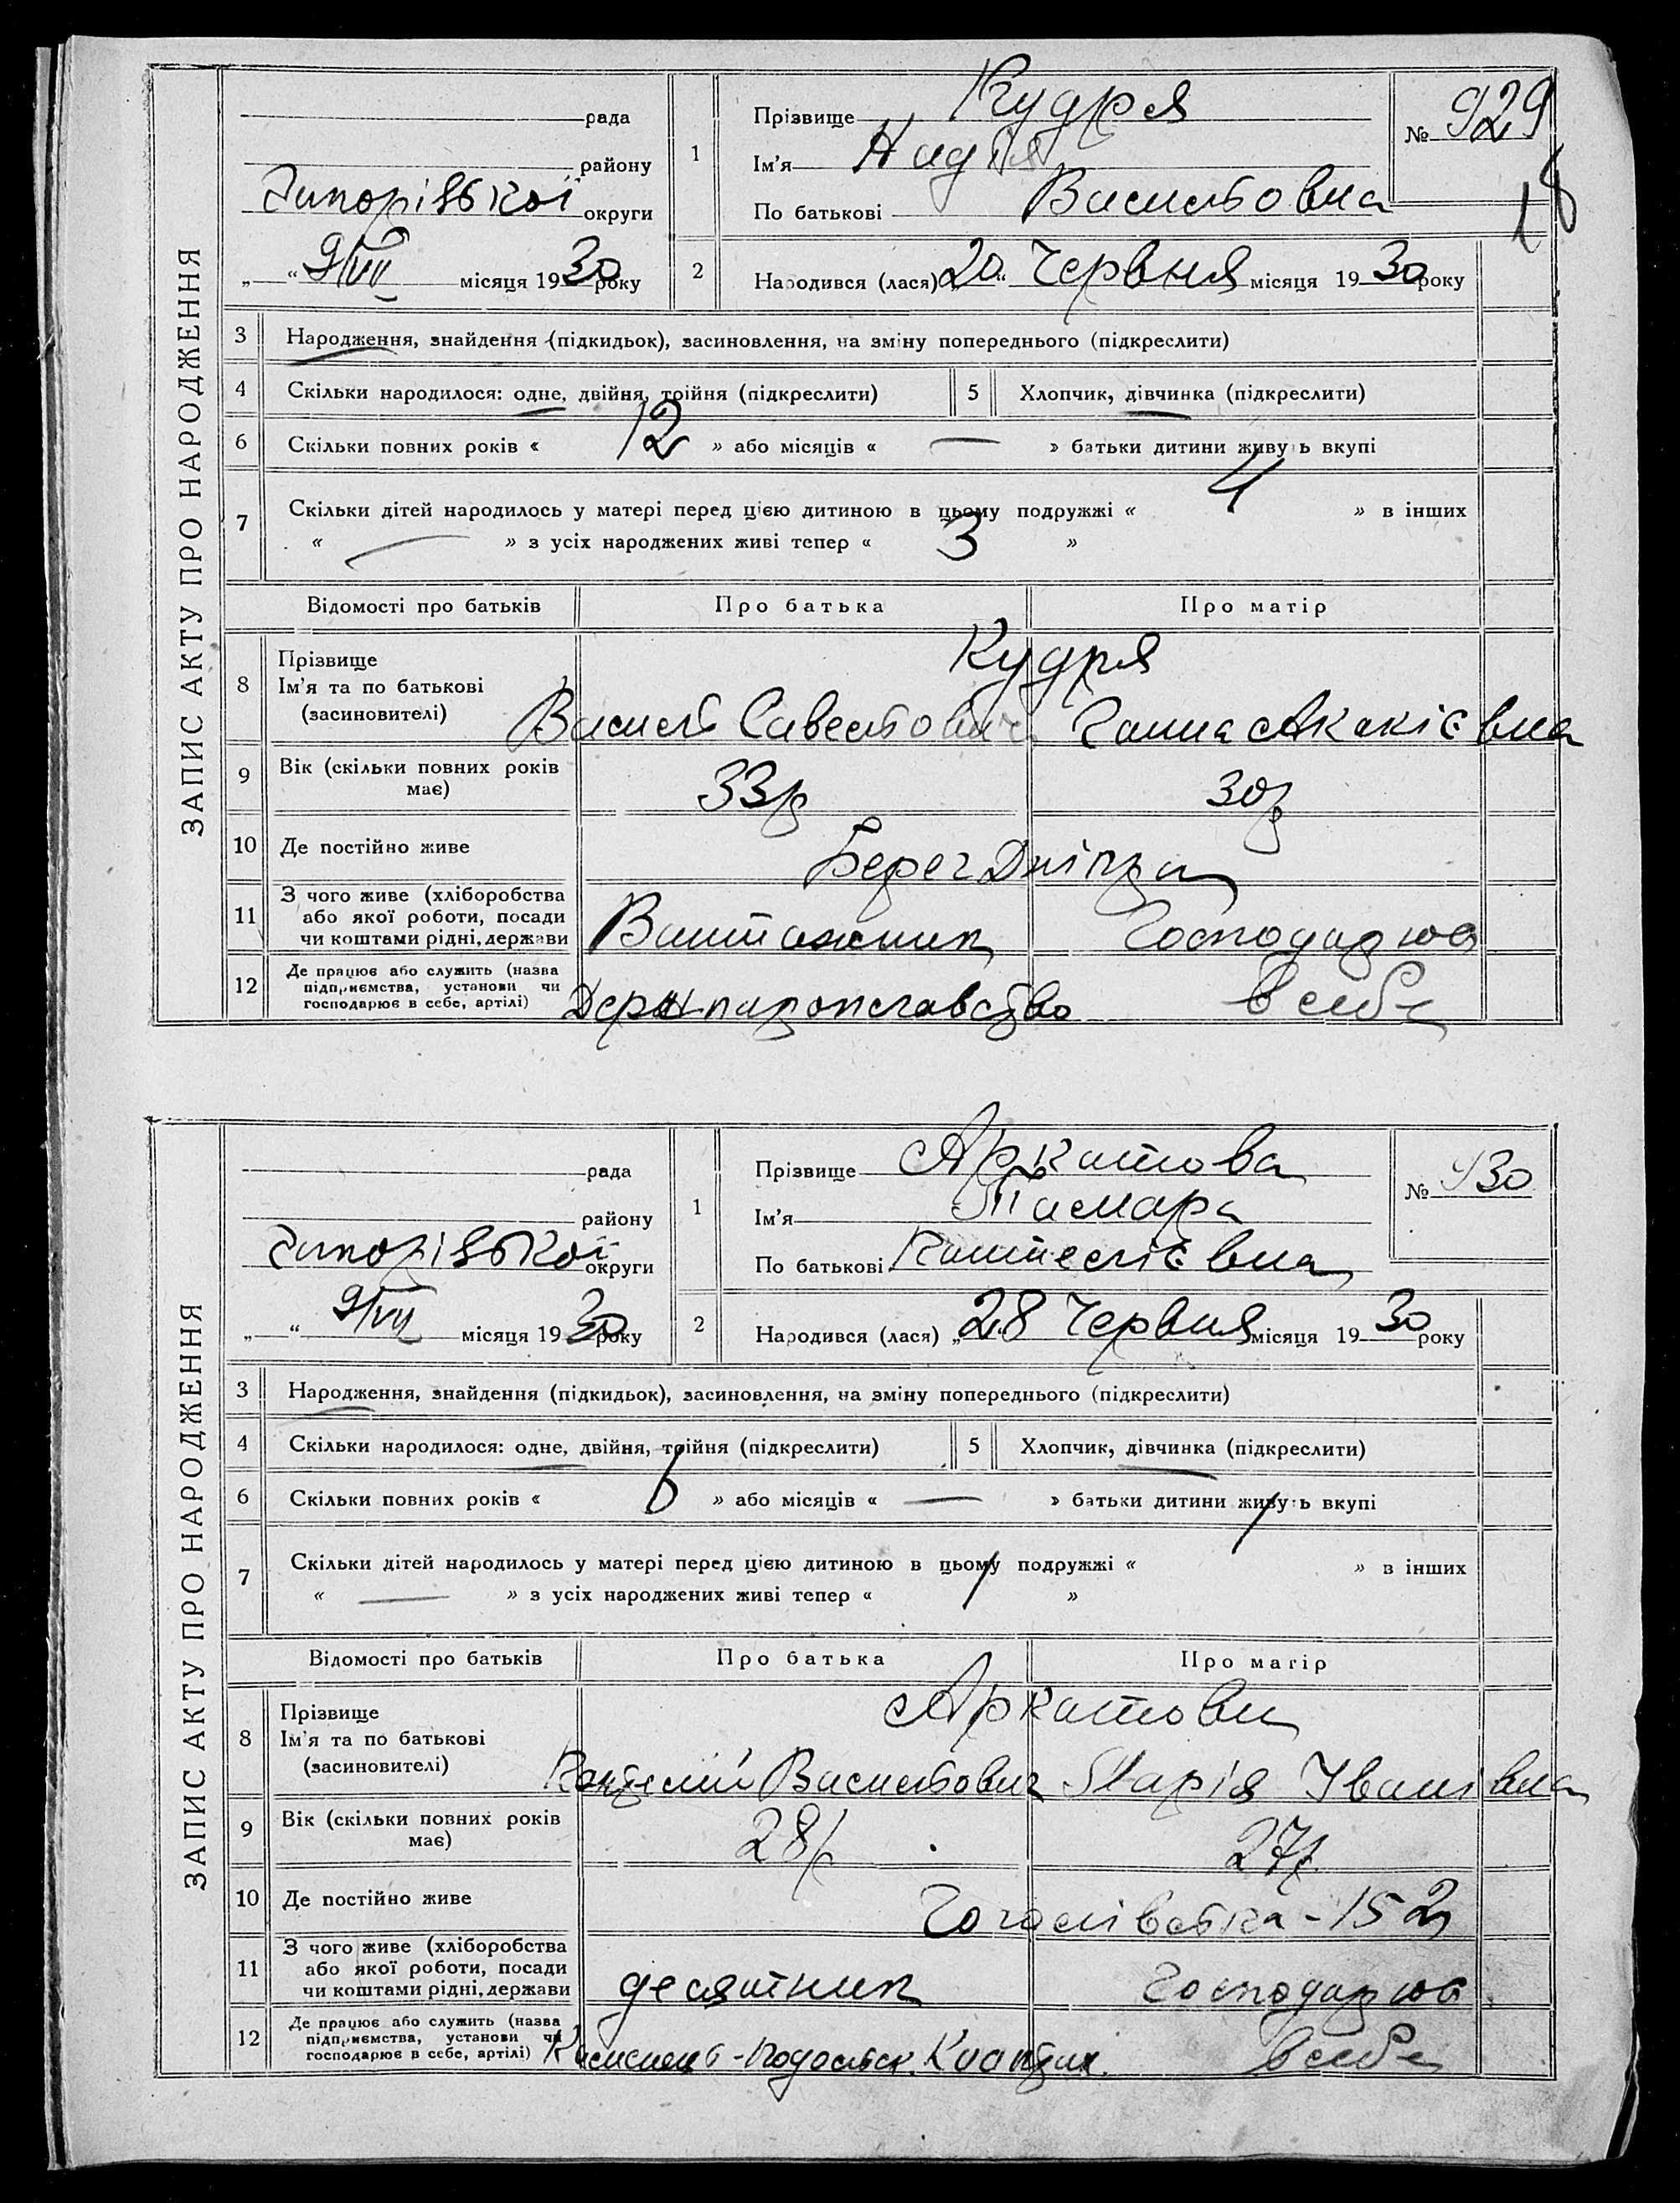 ЗАПИС АКТУ ПРО НАРОДЖЕННЯ
рада
району
Запорізької округи
„ “ 9/VII місяця 1930 року
1
Прізвище Кудря
Ім'я Надія
По батькові Васильовна
№ 929
18
2
Народився (лася) „20“ Червня місяця 1930 року
3 Народження, знайдення (підкидьок), засиновлення, на зміну попереднього (підкреслити)
4 Скільки народилося: одне, двійня, трійня (підкреслити) 5 Хлопчик, дівчинка (підкреслити)
6 Скільки повних років « 12 » або місяців « — » батьки дитини живуть вкупі
7 Скільки дітей народилось у матері перед цією дитиною в цьому подружжі « 4 » в інших
« — » з усіх народжених живі тепер « 3 »
Відомості про батьків Про батька Про матір
8 Прізвище Ім'я та по батькові (засновителі)
Кудря
Василь Савельович Ганна Акакієвна
9 Вік (скільки повних років має) 33р 30р
10 Де постійно живе Берег Дніпра
11 З чого живе (хліборобства або якої роботи, посади чи коштами рідні, держави Вантажник Господарює
12 Де працює або служить (назва підприємства, установи чи господарює в себе, артілі) Держпароплавство в себе
ЗАПИС АКТУ ПРО НАРОДЖЕННЯ
рада
району
Запорізької округи
„ “ 9/VII місяця 1930 року
1
Прізвище Аркатова
Ім'я Тамара
По батькові
№ 930
2
Народився (лася) „28 Червня місяця 1930 року
3 Народження, знайдення (підкидьок), засиновлення, на зміну попереднього (підкреслити)
4 Скільки народилося: одне, двійня, трійня (підкреслити) 5 Хлопчик, дівчинка (підкреслити)
6 Скільки повних років « 6 » або місяців « — » батьки дитини живуть вкупі
7 Скільки дітей народилось у матері перед цією дитиною в цьому подружжі « 1 » в інших
« — » з усіх народжених живі тепер « 1 »
Відомості про батьків Про батька Про матір
8 Прізвище Ім'я та по батькові (засиновителі)
Аркатови
Васильович Марія Іванівна
9 Вік (скільки повних років має) 28р 27р
10 Де постійно живе Гоголівська-152
11 З чого живе (хліборобства або якої роботи, посади чи коштами рідні, держави десятник Господарює
12 Де працює або служить (назва підприємства, установи чи господарює в себе, артілі) в себе